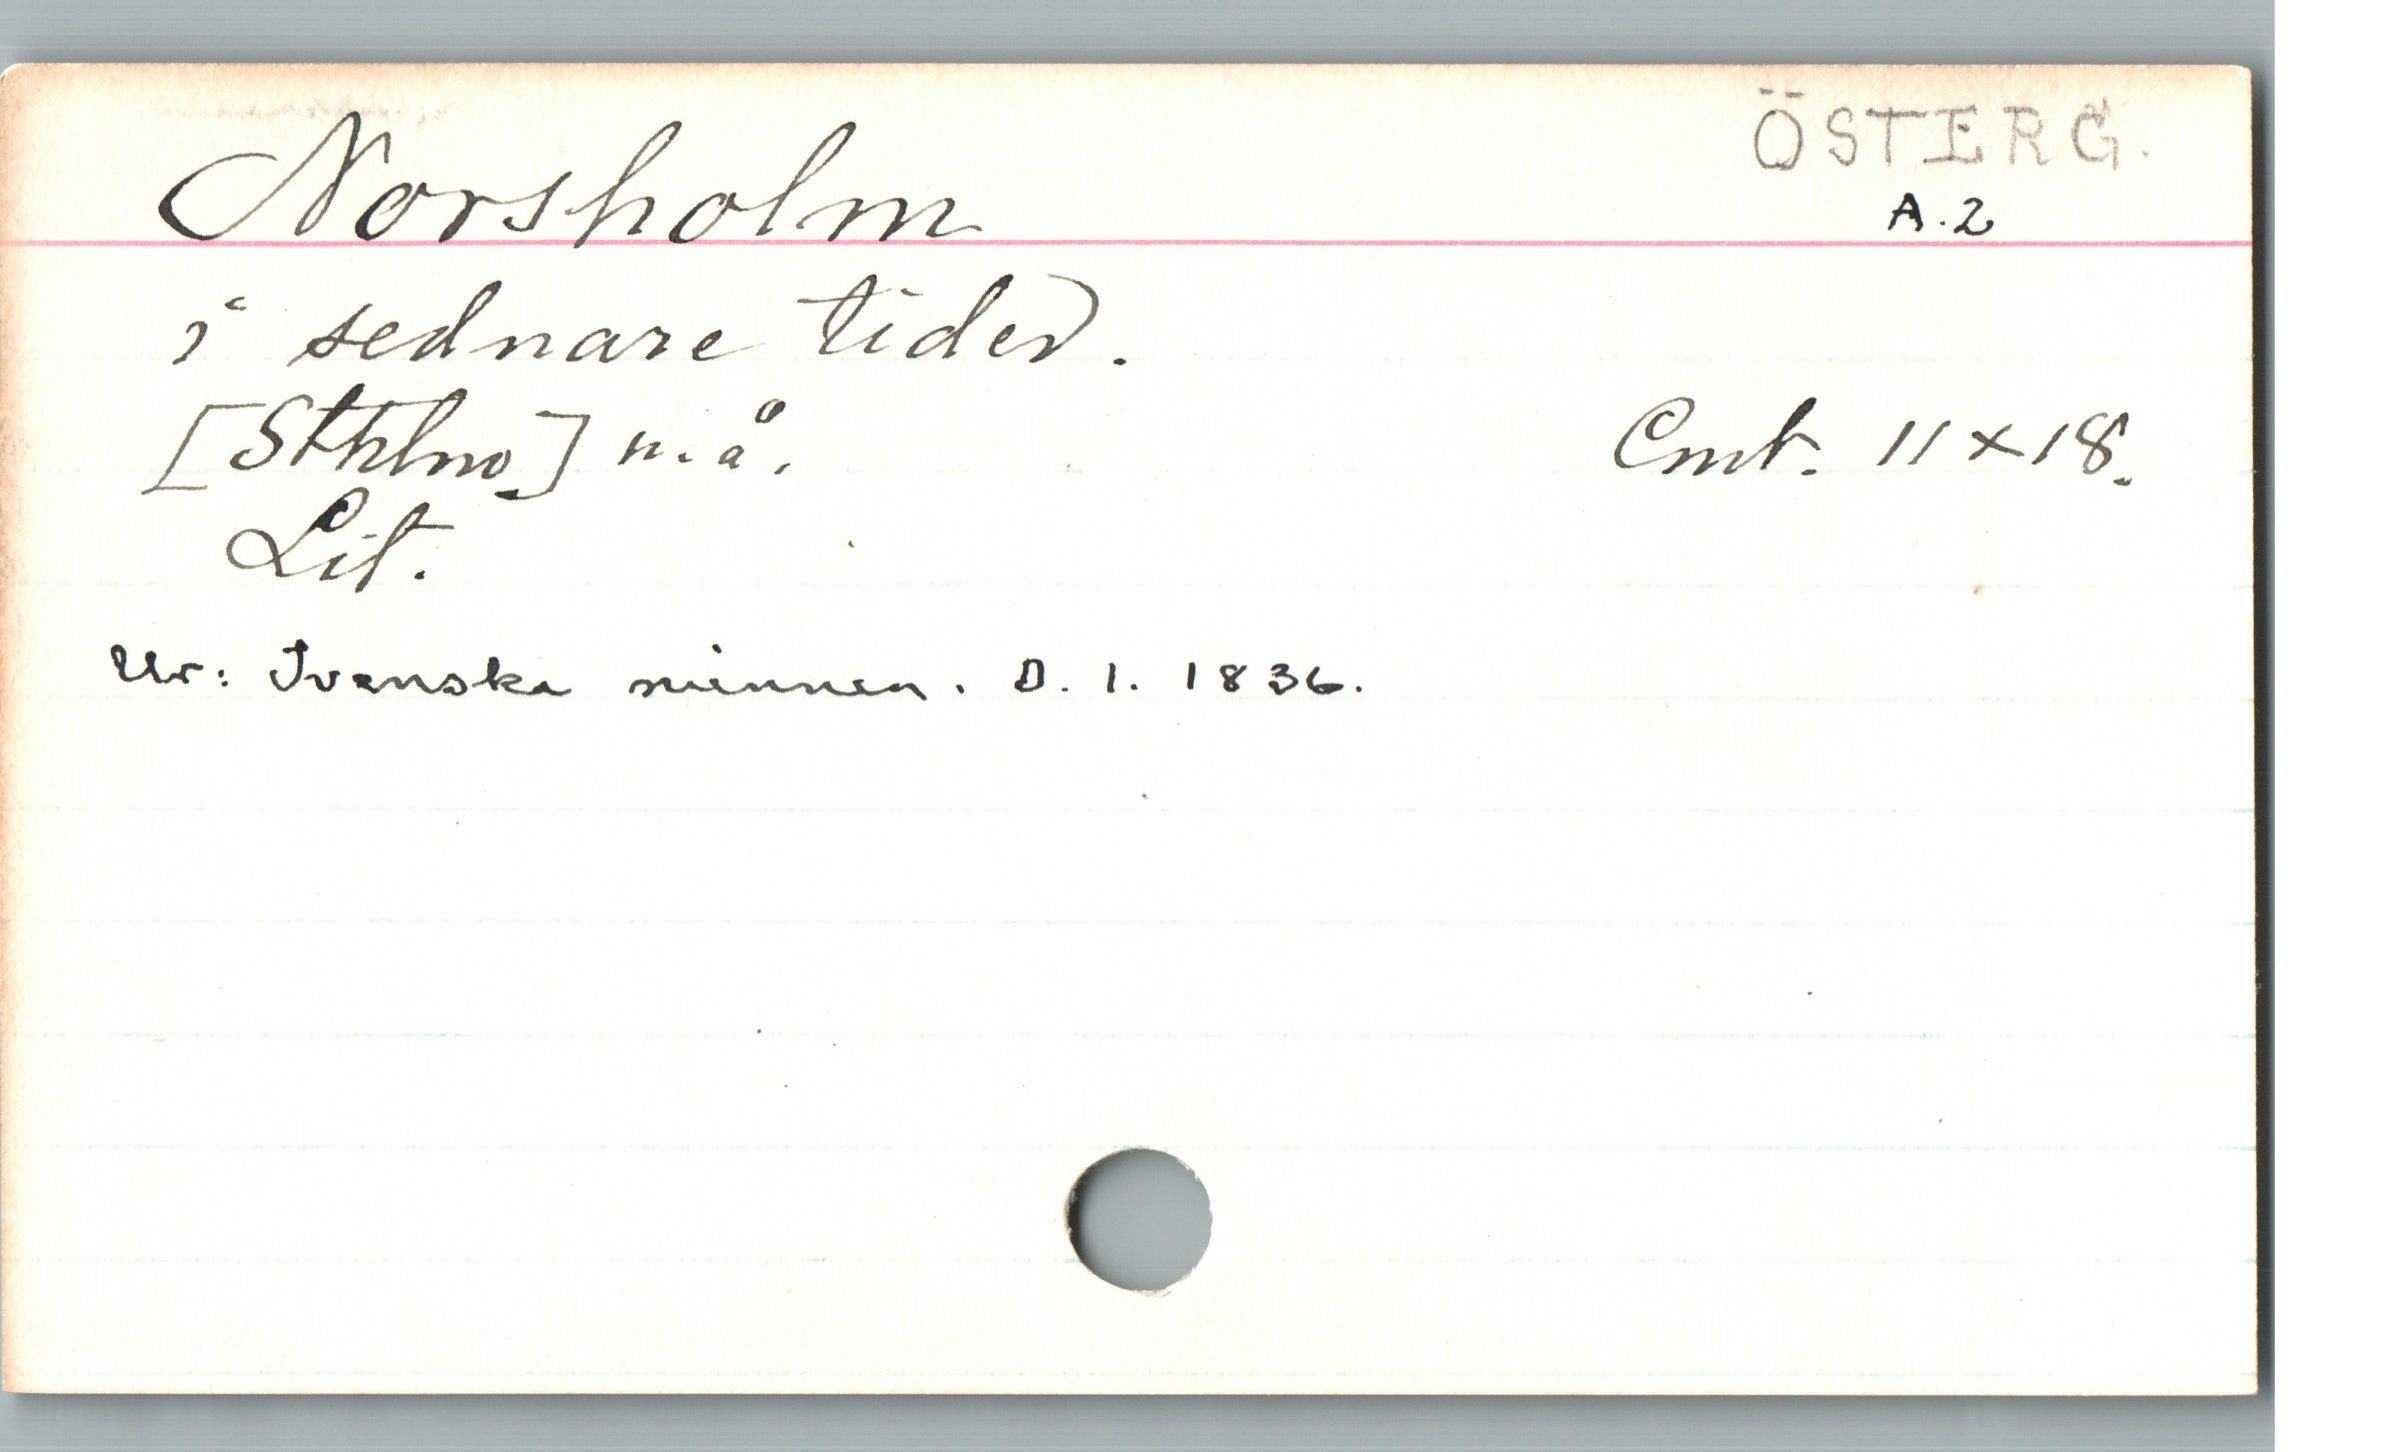 ÖSTERG.
Norsholm
A.2
i sednare tider.
[Sthlm.] u.å.
Cmt. 11 x 18.
Lit.
Ur: Svenska minnen. D. 1. 1836.